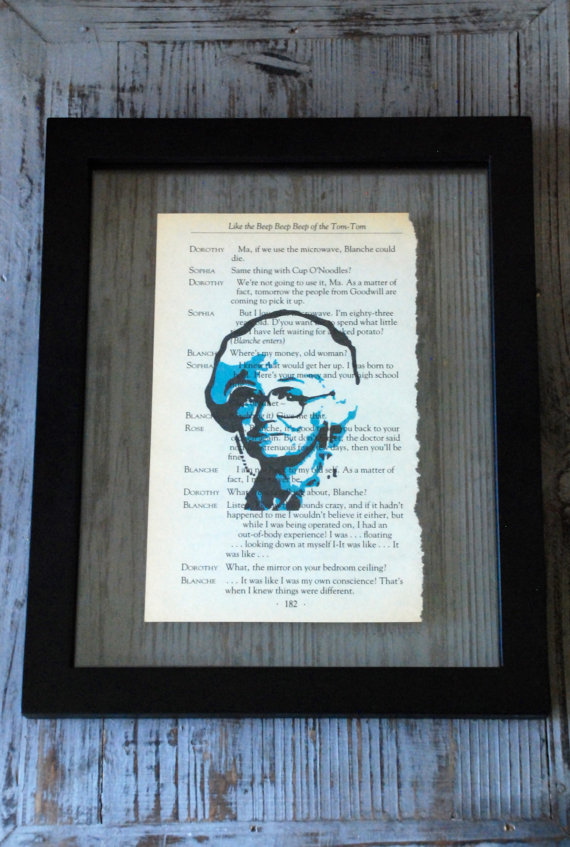 Like the Beep Beep Beep of the Tom-Tom
DOROTHY Ma, if we use the microwave, Blanche could
die.
SOPHIA Same thing with Cup O'Noodles?
DOROTHY We're not going to use it, Ma. As a matter of
fact, tomorrow the people from Goodwill are
coming to pick it up.
SOPHIA But I microwave. I'm eighty-three
old. D'you want to spend what little
I have left waiting for a baked potato?
(Blanche enters)
BLANCHE Where's my money, old woman?
SOPHIA I knew that would get her up. I was born to
Here's your money and your high school
BLANCHE it) Give me that.
ROSE you back to your
But the doctor said
no strenuous days, then you'll be
fine.
BLANCHE I am my old self. As a matter of
fact, I be.
DOROTHY What about, Blanche?
BLANCHE sounds crazy, and if it hadn't
happened to me I wouldn't believe it either, but
while I was being operated on, I had an
out-of-body experience! I was . . . floating
. . . looking down at myself I-It was like . . . It
was like . . .
DOROTHY What, the mirror on your bedroom ceiling?
BLANCHE . . . It was like I was my own conscience! That's
when I knew things were different.
· 182 ·